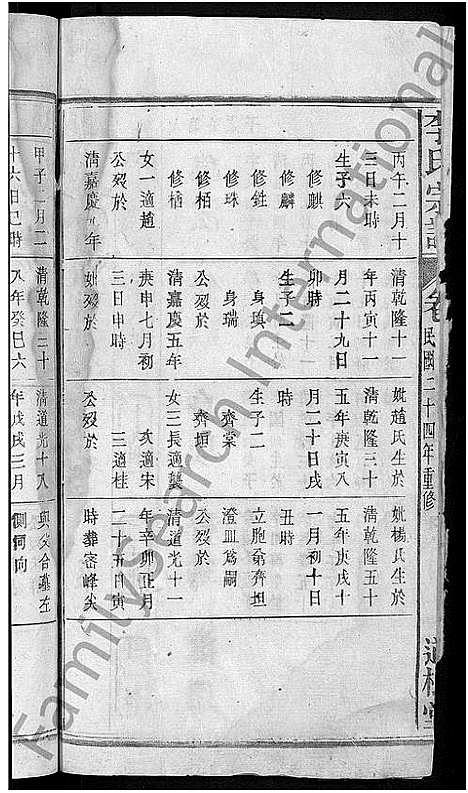 李氏宗譜
卷
民國二十四年重修
道
丙午二月十
三日未時
生子六
修麒
修麟
修甡
修珠
修栢
修楿
女一適趙
公歿於
清嘉慶八年
清乾隆十一
年丙寅十一
月二十九日
卯時
生子二
身瑱
身瑞
公歿於
清嘉慶五年
庚申七月初
三日申時
妣歿於
妣趙氏生於
清乾隆三十
五年庚寅八
月二十日戌
時
生子二
齊棠
齊垣
女三長適龔
次適宋
三適桂
公歿於
妣楊氏生於
清乾隆五十
五年庚戌十
一月初十日
丑時
立胞弟齊垣
澄皿爲嗣
公歿於
清道光十一
年辛卯正月
二十五日寅
時葬密峰尖
甲子二月二
十六日巳時
清乾隆三十
八年癸巳六
清道光十八
年戊戌三月
與父合墓左
側同向
FamilySearch International